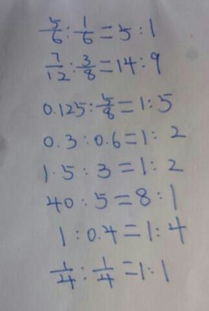 5/6 : 1/6 = 5 : 1
7/12 : 3/8 = 14 : 9
0.125 : 5/8 = 1 : 5
0.3 : 0.6 = 1 : 2
1.5 : 3 = 1 : 2
40 : 5 = 8 : 1
1 : 0.4 = 1 : 4
1/4 : 1/4 = 1 : 1